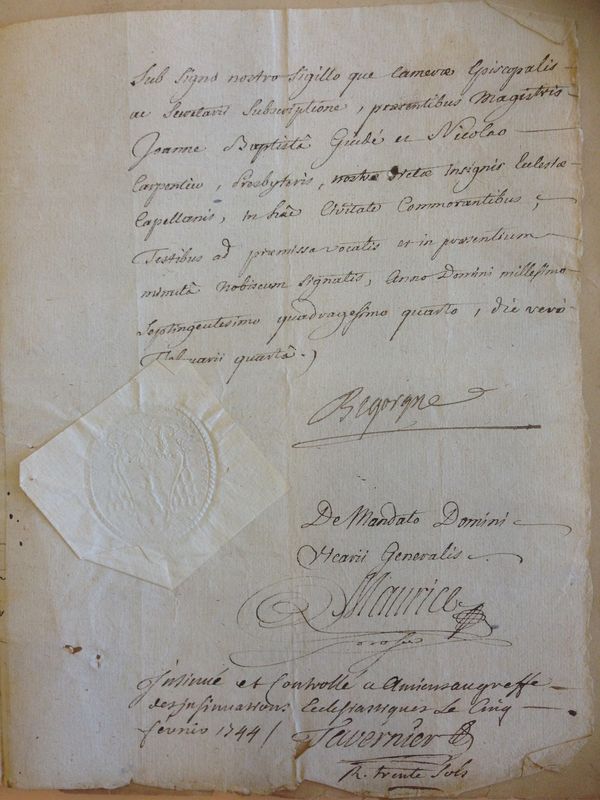 Sub Signo nostro Sigillo que Cameræ Episcopalis
ac Secretarii Subscriptione, præsentibus Magistris
Joanne Baptistâ Guidé et Nicolao
Carpentier, Presbyteris, Insignis Eclesiæ
Capellanis, in hâc Civitate Commorantibus,
Testibus ad præmissa vocatis et in præsentium
minutâ nobiscum signatis, Anno Domini millesimo
Septingentesimo quadragesimo quarto, die verò
Februarii quartâ.)
Begorgne
De Mandato Domini
Vicarii Generalis
Maurice
Insinué et Controllé a Amiens au greffe
des insinuations Ecclesiastiques Le Cinq
fevrier 1744 /
Tavernier
R. trente Sols